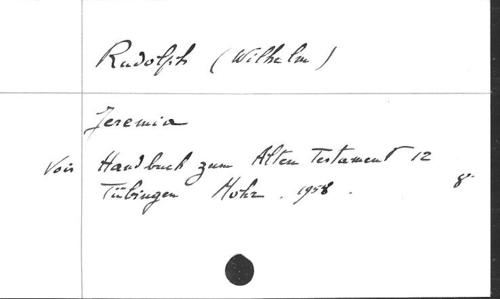 Rudolph (Wilhelm)
Jeremia
Vois Handbuch zum Alten Testament 12
Tübingen Mohr . 1958 . 8°